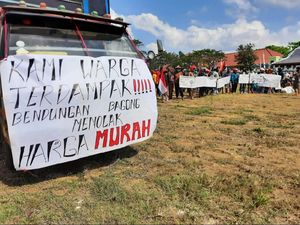 KAMI WARGA
TERDAMPAK!!!!!
BENDUNGAN BAGONG
MENOLAK
HARGA MURAH